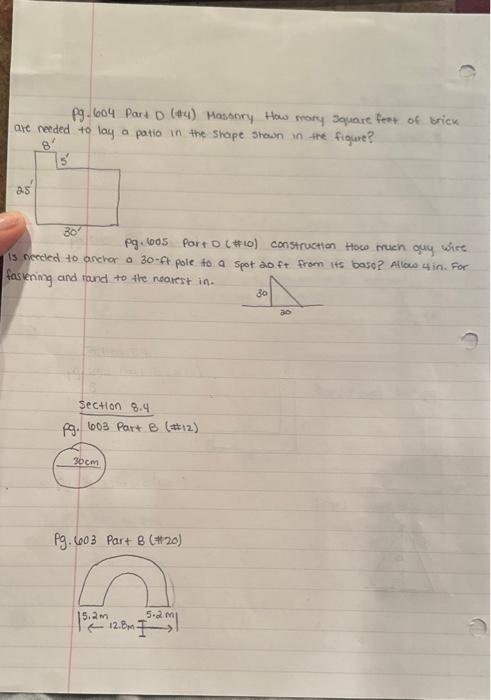 pg. 604 Part D (#4) Masonry How many square feet of brick
are needed to lay a patio in the shape shown in the figure?
8'
5'
25'
30'
pg. 605 Part D (#10) construction How much guy wire
is needed to anchor a 30-ft pole to a spot 20 ft from its base? Allow 4 in. For
fastening and rand to the nearest in.
30
20
Section 8.4
pg. 603 Part B (#12)
30cm
Pg. 603 Part B (#20)
5.2m 5.2m
12.8m